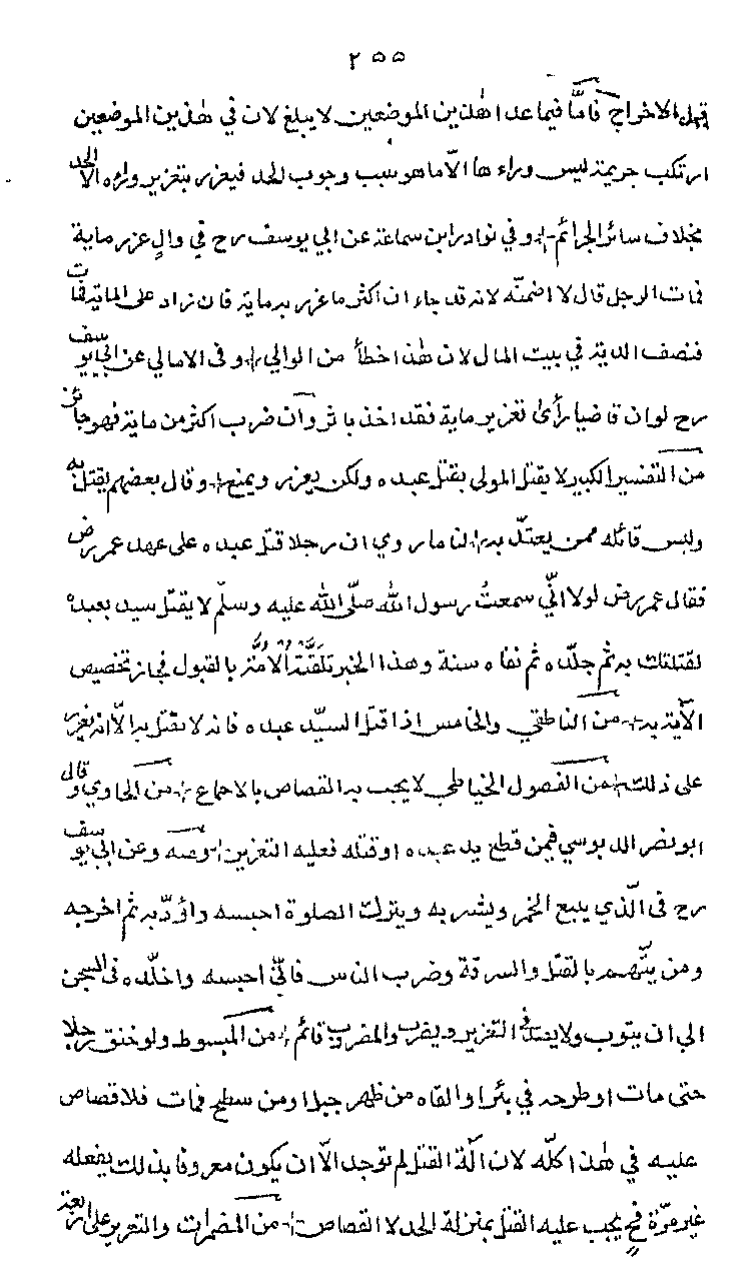 ٢٥٥
قبل الاخراج فامّا فيما عدا هٰذين الموضعين لا يبلغ لان في هٰذين الموضعين
ارتكب جريمة ليس وراءها الّا ما هو سبب وجوب الحد فيعزر بتعزير وراءه الا الحد
بخلاف سائر الجرائم وفي نوادر ابن سماعة عن ابي يوسف رح في والٍ عزر ماية
فمات الرجل قال لا اضمنّه لانه قد جاء ان اكثر ما عزر به ماية فان زاد على الماية فمات
فنصف الدية في بيت المال لان هٰذا خطأ من الوالي وفى الامالي عن ابي يوسف
رح لو ان قاضيا رأى تعزير ماية فقد اخذ باثر وان ضرب اكثر من ماية فهو جائز
من التفسير الكبير لا يقتل المولى بقتل عبده ولكن يعزر ويمنع وقال بعضهم يقتل به
وليس قائله ممن يعتدّ به لنا ما روي ان رجلا قتل عبده على عهد عمر رض
فقال عمر رض لولا انّي سمعتُ رسول الله صلّى الله عليه وسلّم لا يقتل سيد بعبده
لقتلتك به ثم جلّده ثم نفاه سنة وهذا الخبر تلقَّتهُ الاُمّة بالقبول فجاز تخصيص
الآية به من الناطفي والخامس اذا قتل السيّد عبده فانه لا يقتل به الّا انه يعزر
على ذلك من الفصول الخياطي لا يجب به القصاص بالاجماع من الحاوي وقال
ابو نصر الدبوسي فيمن قطع يد عبده او قتله فعليه التعزير ومنه وعن ابي يوسف
رح فى الّذي يبيع الخمر ويشربه ويترك الصلوة احبسه واؤدّبه ثم اخرجه
ومن يتّهم بالقتل والسرقة وضرب الناس فانّي احبسه واخلّده فى السجن
الى ان يتوب ولا يمدّ فى التعزير ويضرب والمضروب قائم من المبسوط ولو خنق رجلا
حتى مات او طرحه في بئر او القاه من ظهر جبل او من سطح فمات فلا قصاص
عليه في هٰذا كلّه لان آلة القتل لم توجد الّا ان يكون معروفا بذلك يفعله
غير مرّة فح يجب عليه القتل بمنزلة الحد لا القصاص من المضمرات والتعزير على اربعة